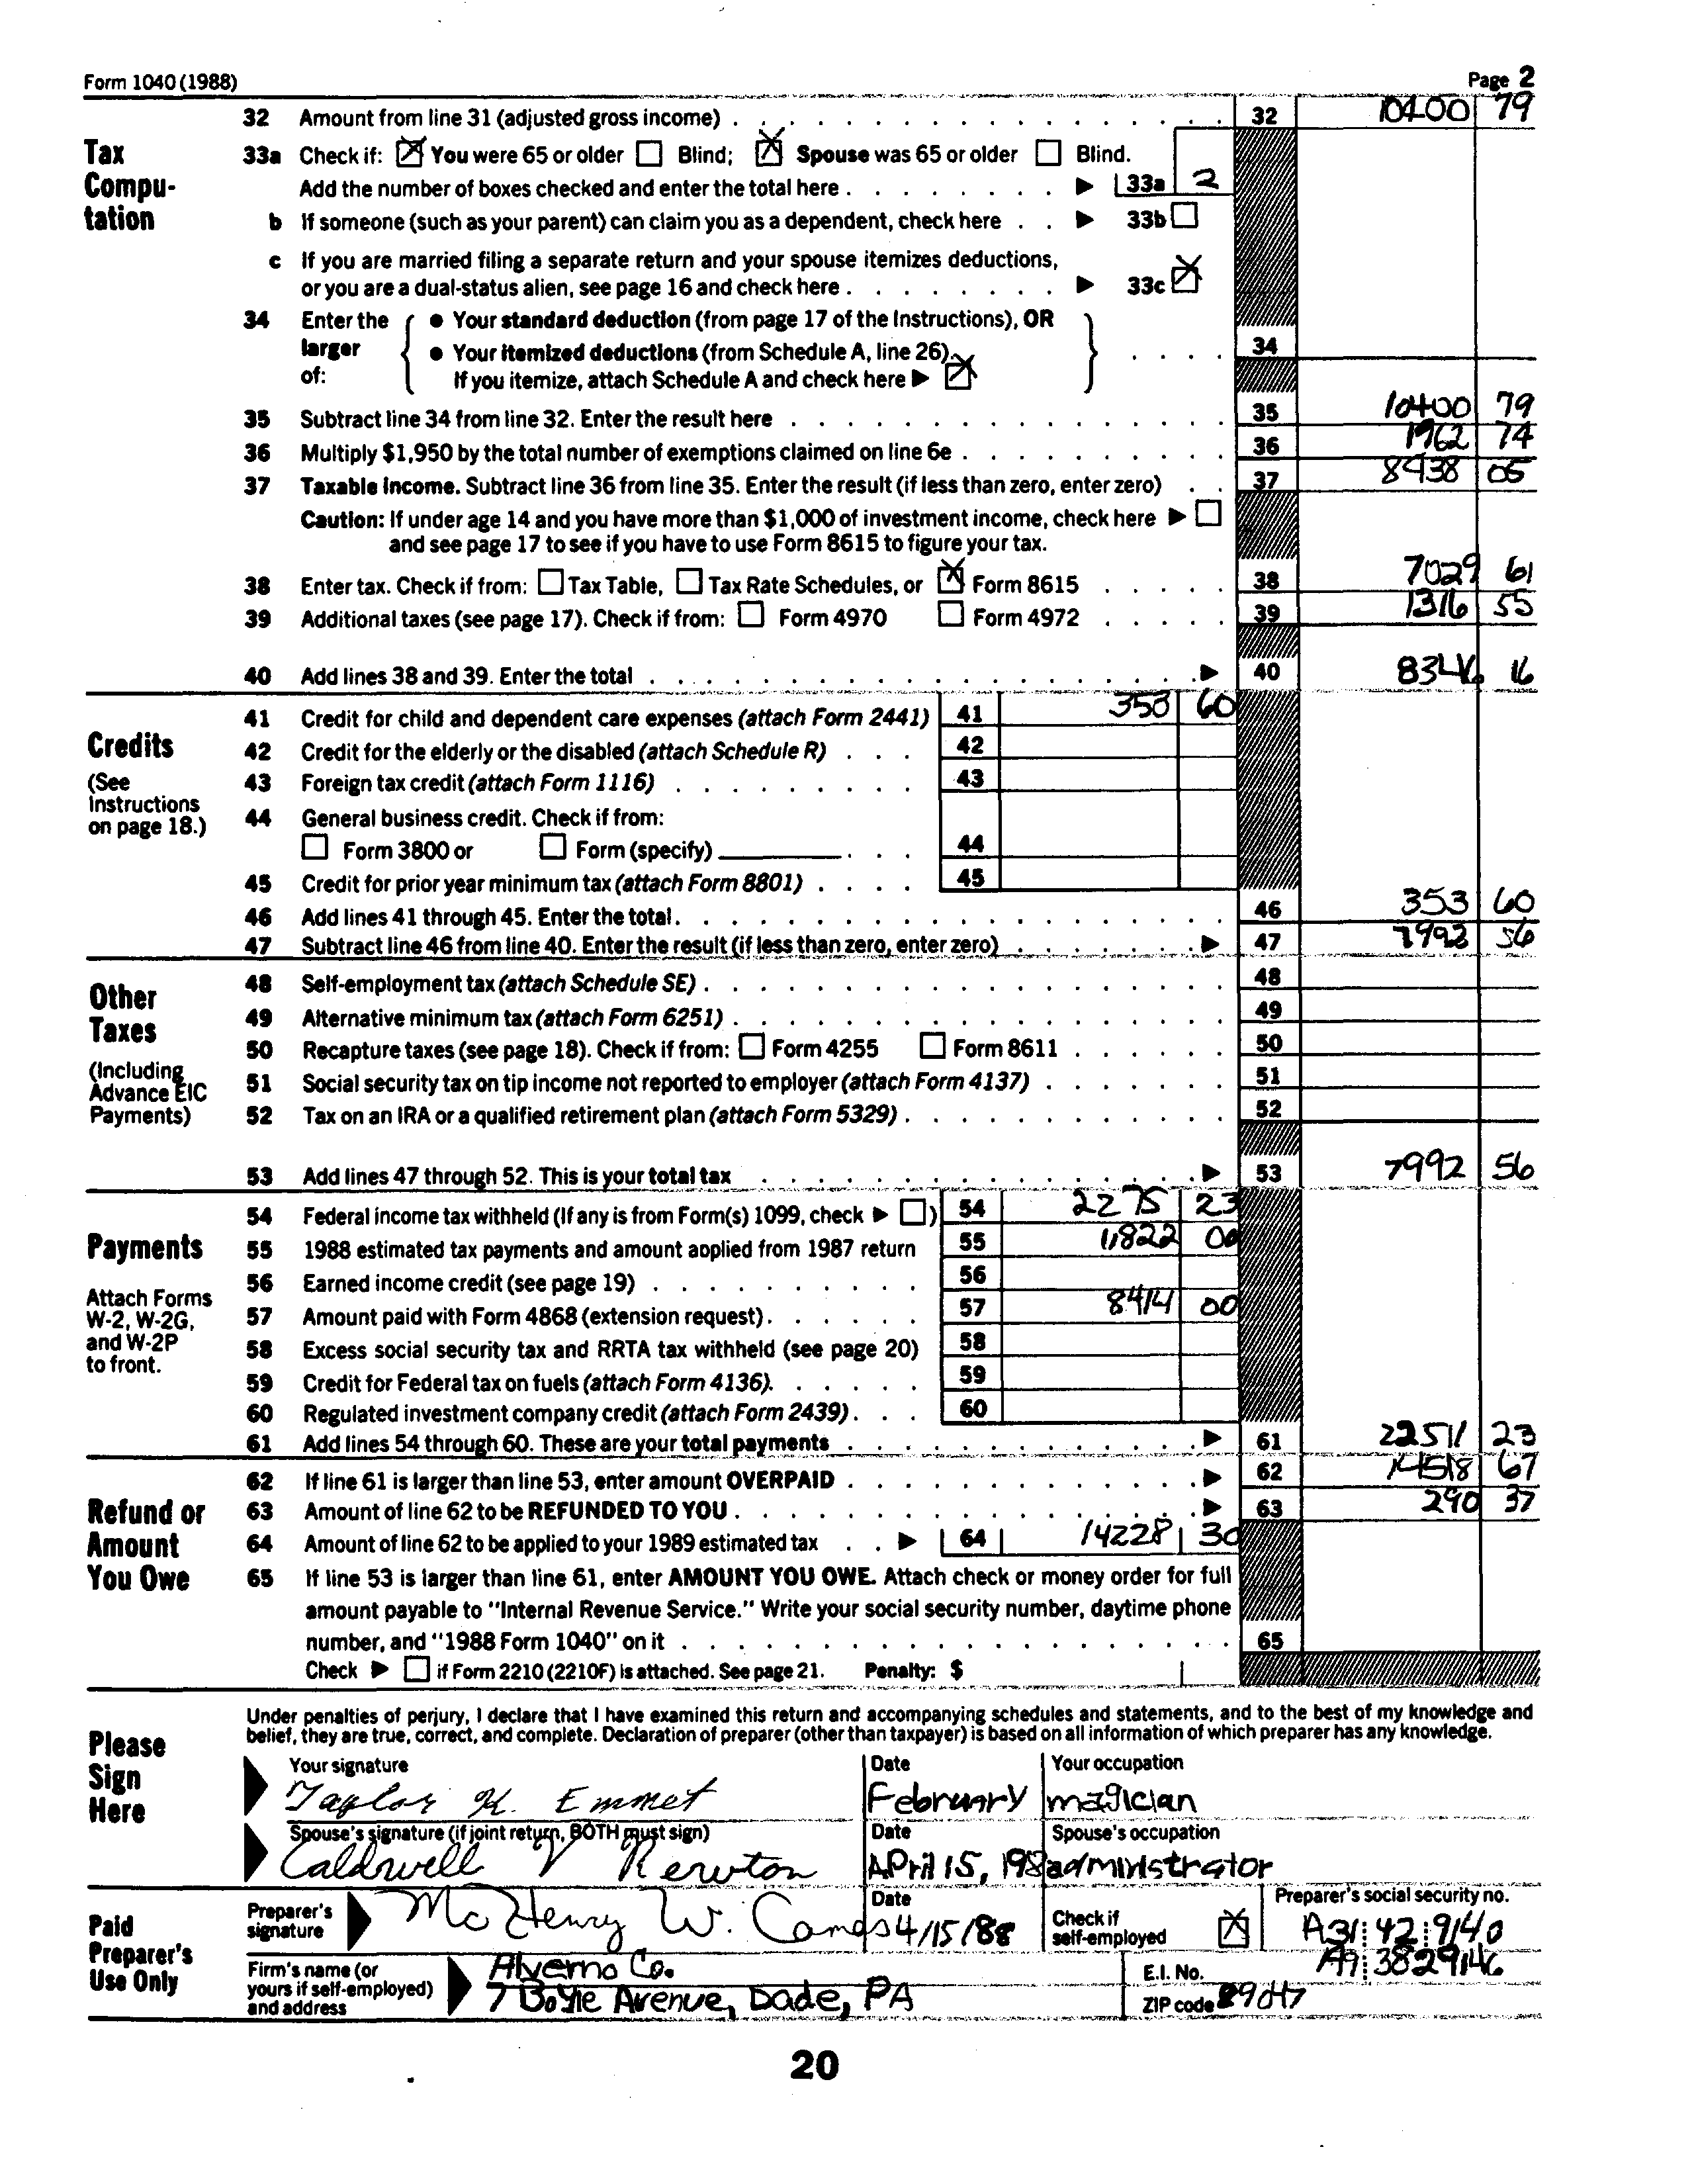 Form 1040 (1988) Page 2
32 Amount from line 31 (adjusted gross income) 32 10400 79
Tax Compu-tation
33a Check if: You were 65 or older Blind; Spouse was 65 or older Blind.
Add the number of boxes checked and enter the total here 33a 2
b If someone (such as your parent) can claim you as a dependent, check here 33b
c If you are married filing a separate return and your spouse itemizes deductions,
or you are a dual-status alien, see page 16 and check here 33c
34 Enter the larger of:
• Your standard deduction (from page 17 of the Instructions), OR
• Your itemized deductions (from Schedule A, line 26). 34
If you itemize, attach Schedule A and check here
35 Subtract line 34 from line 32. Enter the result here 35 10400 79
36 Multiply $1,950 by the total number of exemptions claimed on line 6e 36 1962 74
37 Taxable income. Subtract line 36 from line 35. Enter the result (if less than zero, enter zero) 37 8438 05
Caution: If under age 14 and you have more than $1,000 of investment income, check here
and see page 17 to see if you have to use Form 8615 to figure your tax.
38 Enter tax. Check if from: Tax Table, Tax Rate Schedules, or Form 8615 38 7029 61
39 Additional taxes (see page 17). Check if from: Form 4970 Form 4972 39 1316 55
40 Add lines 38 and 39. Enter the total 40 8346 16
Credits
(See Instructions on page 18.)
41 Credit for child and dependent care expenses (attach Form 2441) 41 353 60
42 Credit for the elderly or the disabled (attach Schedule R) 42
43 Foreign tax credit (attach Form 1116) 43
44 General business credit. Check if from:
Form 3800 or Form (specify) 44
45 Credit for prior year minimum tax (attach Form 8801) 45
46 Add lines 41 through 45. Enter the total. 46 353 60
47 Subtract line 46 from line 40. Enter the result (if less than zero, enter zero) 47 7992 56
Other Taxes
(Including Advance EIC Payments)
48 Self-employment tax (attach Schedule SE) 48
49 Alternative minimum tax (attach Form 6251) 49
50 Recapture taxes (see page 18). Check if from: Form 4255 Form 8611 50
51 Social security tax on tip income not reported to employer (attach Form 4137) 51
52 Tax on an IRA or a qualified retirement plan (attach Form 5329) 52
53 Add lines 47 through 52. This is your total tax 53 7992 56
Payments
Attach Forms W-2, W-2G, and W-2P to front.
54 Federal income tax withheld (If any is from Form(s) 1099, check ) 54 2275 23
55 1988 estimated tax payments and amount applied from 1987 return 55 11822 00
56 Earned income credit (see page 19) 56
57 Amount paid with Form 4868 (extension request). 57 8414 00
58 Excess social security tax and RRTA tax withheld (see page 20) 58
59 Credit for Federal tax on fuels (attach Form 4136). 59
60 Regulated investment company credit (attach Form 2439) 60
61 Add lines 54 through 60. These are your total payments 61 22511 23
Refund or Amount You Owe
62 If line 61 is larger than line 53, enter amount OVERPAID 62 14518 67
63 Amount of line 62 to be REFUNDED TO YOU 63 290 37
64 Amount of line 62 to be applied to your 1989 estimated tax 64 14228 30
65 If line 53 is larger than line 61, enter AMOUNT YOU OWE. Attach check or money order for full
amount payable to "Internal Revenue Service." Write your social security number, daytime phone
number, and "1988 Form 1040" on it 65
Check if Form 2210 (2210F) is attached. See page 21. Penalty: $
Please Sign Here
Under penalties of perjury, I declare that I have examined this return and accompanying schedules and statements, and to the best of my knowledge and
belief, they are true, correct, and complete. Declaration of preparer (other than taxpayer) is based on all information of which preparer has any knowledge.
Your signature Date Your occupation
Taylor K. Emmet February magician
Spouse's signature (if joint return, BOTH must sign) Date Spouse's occupation
Caldwell V Rewton April 15, 198 administrator
Paid Preparer's Use Only
Preparer's signature McHenry W. Camgs Date 4/15/88 Check if self-employed Preparer's social security no. A31:42:9140
Firm's name (or yours if self-employed) and address Alverno Co. E.I. No. A9:3829146
7 Boyle Avenue, Dade, PA ZIP code 89047
20